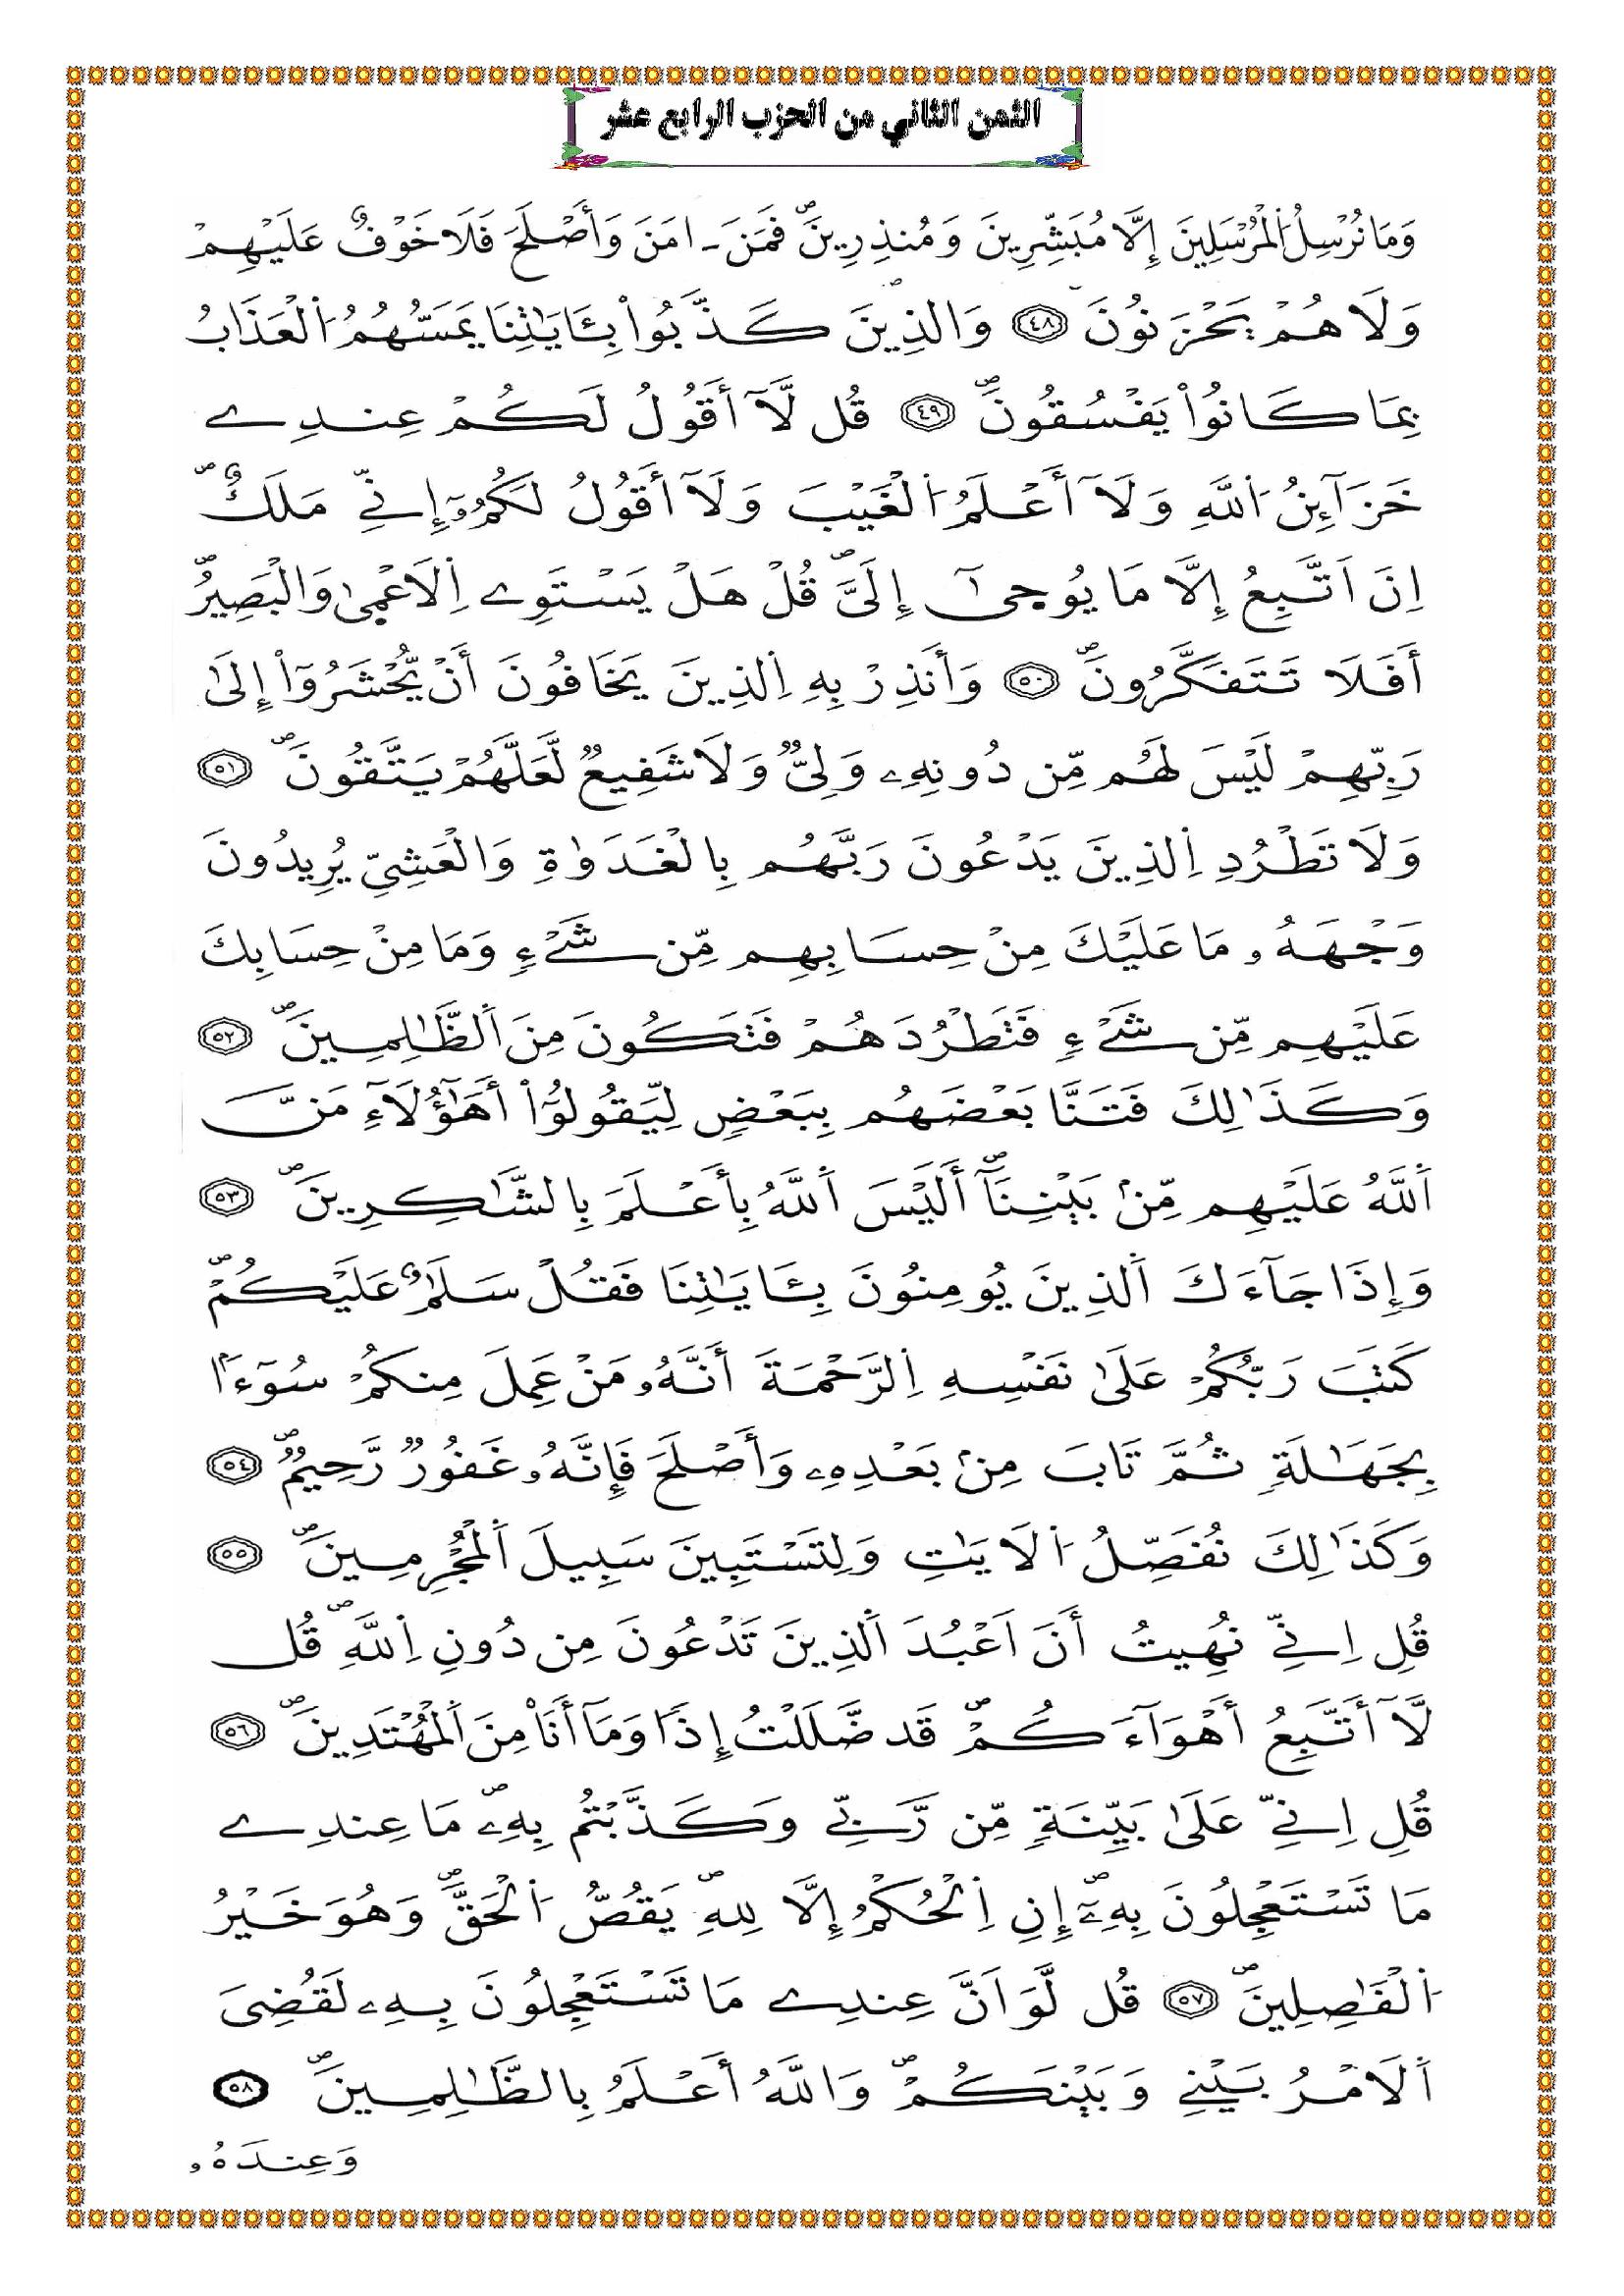 الثمن الثاني من الحزب الرابع عشر
وَمَا نُرْسِلُ اُ۬لْمُرْسَلِينَ إِلَّا مُبَشِّرِينَ وَمُنذِرِينَۖ فَمَنَ ـ امَنَ وَأَصْلَحَ فَلَا خَوْفٌ عَلَيْهِمْ
وَلَا هُمْ يَحْزَنُونَ ٤٨ وَالذِينَ كَذَّبُواْ بِـَٔايَٰتِنَا يَمَسُّهُمُ اُ۬لْعَذَابُ
بِمَا كَانُواْ يَفْسُقُونَۖ ٤٩ قُل لَّآ أَقُولُ لَكُمْ عِندِے
خَزَآئِنُ اُ۬للَّهِ وَلَآ أَعْلَمُ اُ۬لْغَيْبَ وَلَآ أَقُولُ لَكُمُۥٓ إِنِّے مَلَكٌۖ
اِنَ اَتَّبِعُ إِلَّا مَا يُوحَىٰٓ إِلَيَّۖ قُلْ هَلْ يَسْتَوِے اِ۬لَاعْمَىٰ وَالْبَصِيرُۖ
أَفَلَا تَتَفَكَّرُونَۖ ٥٠ وَأَنذِرْ بِهِ اِ۬لذِينَ يَخَافُونَ أَنْ يُّحْشَرُوٓاْ إِلَىٰ
رَبِّهِمْ لَيْسَ لَهُم مِّن دُونِهِۦ وَلِيٌّ وَلَا شَفِيعٌ لَّعَلَّهُمْ يَتَّقُونَۖ ٥١
وَلَا تَطْرُدِ اِ۬لذِينَ يَدْعُونَ رَبَّهُم بِالْغَدَوٰةِ وَالْعَشِيِّ يُرِيدُونَ
وَجْهَهُۥ مَا عَلَيْكَ مِنْ حِسَابِهِم مِّن شَےْءٖ وَمَا مِنْ حِسَابِكَ
عَلَيْهِم مِّن شَےْءٖ فَتَطْرُدَهُمْ فَتَكُونَ مِنَ اَ۬لظَّٰلِمِينَۖ ٥٢
وَكَذَٰلِكَ فَتَنَّا بَعْضَهُم بِبَعْضٍ لِّيَقُولُوٓاْ أَهَٰٓؤُلَآءِ مَنَّ
اَ۬للَّهُ عَلَيْهِم مِّنۢ بَيْنِنَآۖ أَلَيْسَ اَ۬للَّهُ بِأَعْلَمَ بِالشَّٰكِرِينَۖ ٥٣
وَإِذَا جَآءَكَ اَ۬لذِينَ يُومِنُونَ بِـَٔايَٰتِنَا فَقُلْ سَلَٰمٌ عَلَيْكُمْۖ
كَتَبَ رَبُّكُمْ عَلَىٰ نَفْسِهِ اِ۬لرَّحْمَةَ أَنَّهُۥ مَنْ عَمِلَ مِنكُمْ سُوٓءَاۢ
بِجَهَٰلَةٖ ثُمَّ تَابَ مِنۢ بَعْدِهِۦ وَأَصْلَحَ فَإِنَّهُۥ غَفُورٌ رَّحِيمٌۖ ٥٤
وَكَذَٰلِكَ نُفَصِّلُ اُ۬لَايَٰتِ وَلِتَسْتَبِينَ سَبِيلَ اَ۬لْمُجْرِمِينَۖ ٥٥
قُلِ اِنِّے نُهِيتُ أَنَ اَعْبُدَ اَ۬لذِينَ تَدْعُونَ مِن دُونِ اِ۬للَّهِۖ قُل
لَّآ أَتَّبِعُ أَهْوَآءَكُمْۖ قَد ضَّلَلْتُ إِذاٗ وَمَآ أَنَا۠ مِنَ اَ۬لْمُهْتَدِينَۖ ٥٦
قُلِ اِنِّے عَلَىٰ بَيِّنَةٖ مِّن رَّبِّے وَكَذَّبْتُم بِهِۦۖ مَا عِندِے
مَا تَسْتَعْجِلُونَ بِهِۦٓۖ إِنِ اِ۬لْحُكْمُ إِلَّا لِلهِۖ يَقُصُّ اُ۬لْحَقَّۖ وَهُوَ خَيْرُ
اُ۬لْفَٰصِلِينَۖ ٥٧ قُل لَّوَ اَنَّ عِندِے مَا تَسْتَعْجِلُونَ بِهِۦ لَقُضِيَ
اَ۬لَامْرُ بَيْنِے وَبَيْنَكُمْۖ وَاللَّهُ أَعْلَمُ بِالظَّٰلِمِينَۖ ٥٨
وَعِندَهُۥ